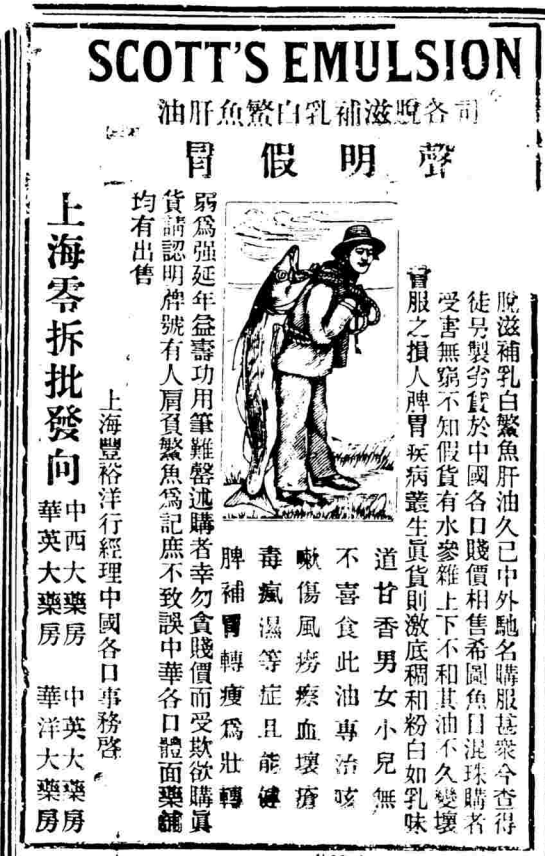 SCOTT'S EMULSION
司各脫滋補乳白鰵魚肝油
聲明假冒
脫滋補乳白鰵魚肝油久已中外馳名購服甚衆今查得
徒另製劣貨於中國各口賤價相售希圖魚目混珠購者
受害無窮不知假貨有水參雜上下不和其油不久變壞
冒服之損人脾胃疾病叢生眞貨則激底稠和粉白如乳味
道甘香男女小兒無
不喜食此油專治咳
嗽傷風癆瘵血壞瘡
毒瘋濕等症且能健
脾補胃轉瘦爲壯轉
弱爲强延年益壽功用筆難罄述購者幸勿貪賤價而受欺欲購眞
貨請認明牌號有人肩負鰵魚爲記庶不致誤中華各口體面藥鋪
均有出售
上海豐裕洋行經理中國各口事務啓
上海零拆批發向
中西大藥房 中英大藥房
華英大藥房 華洋大藥房